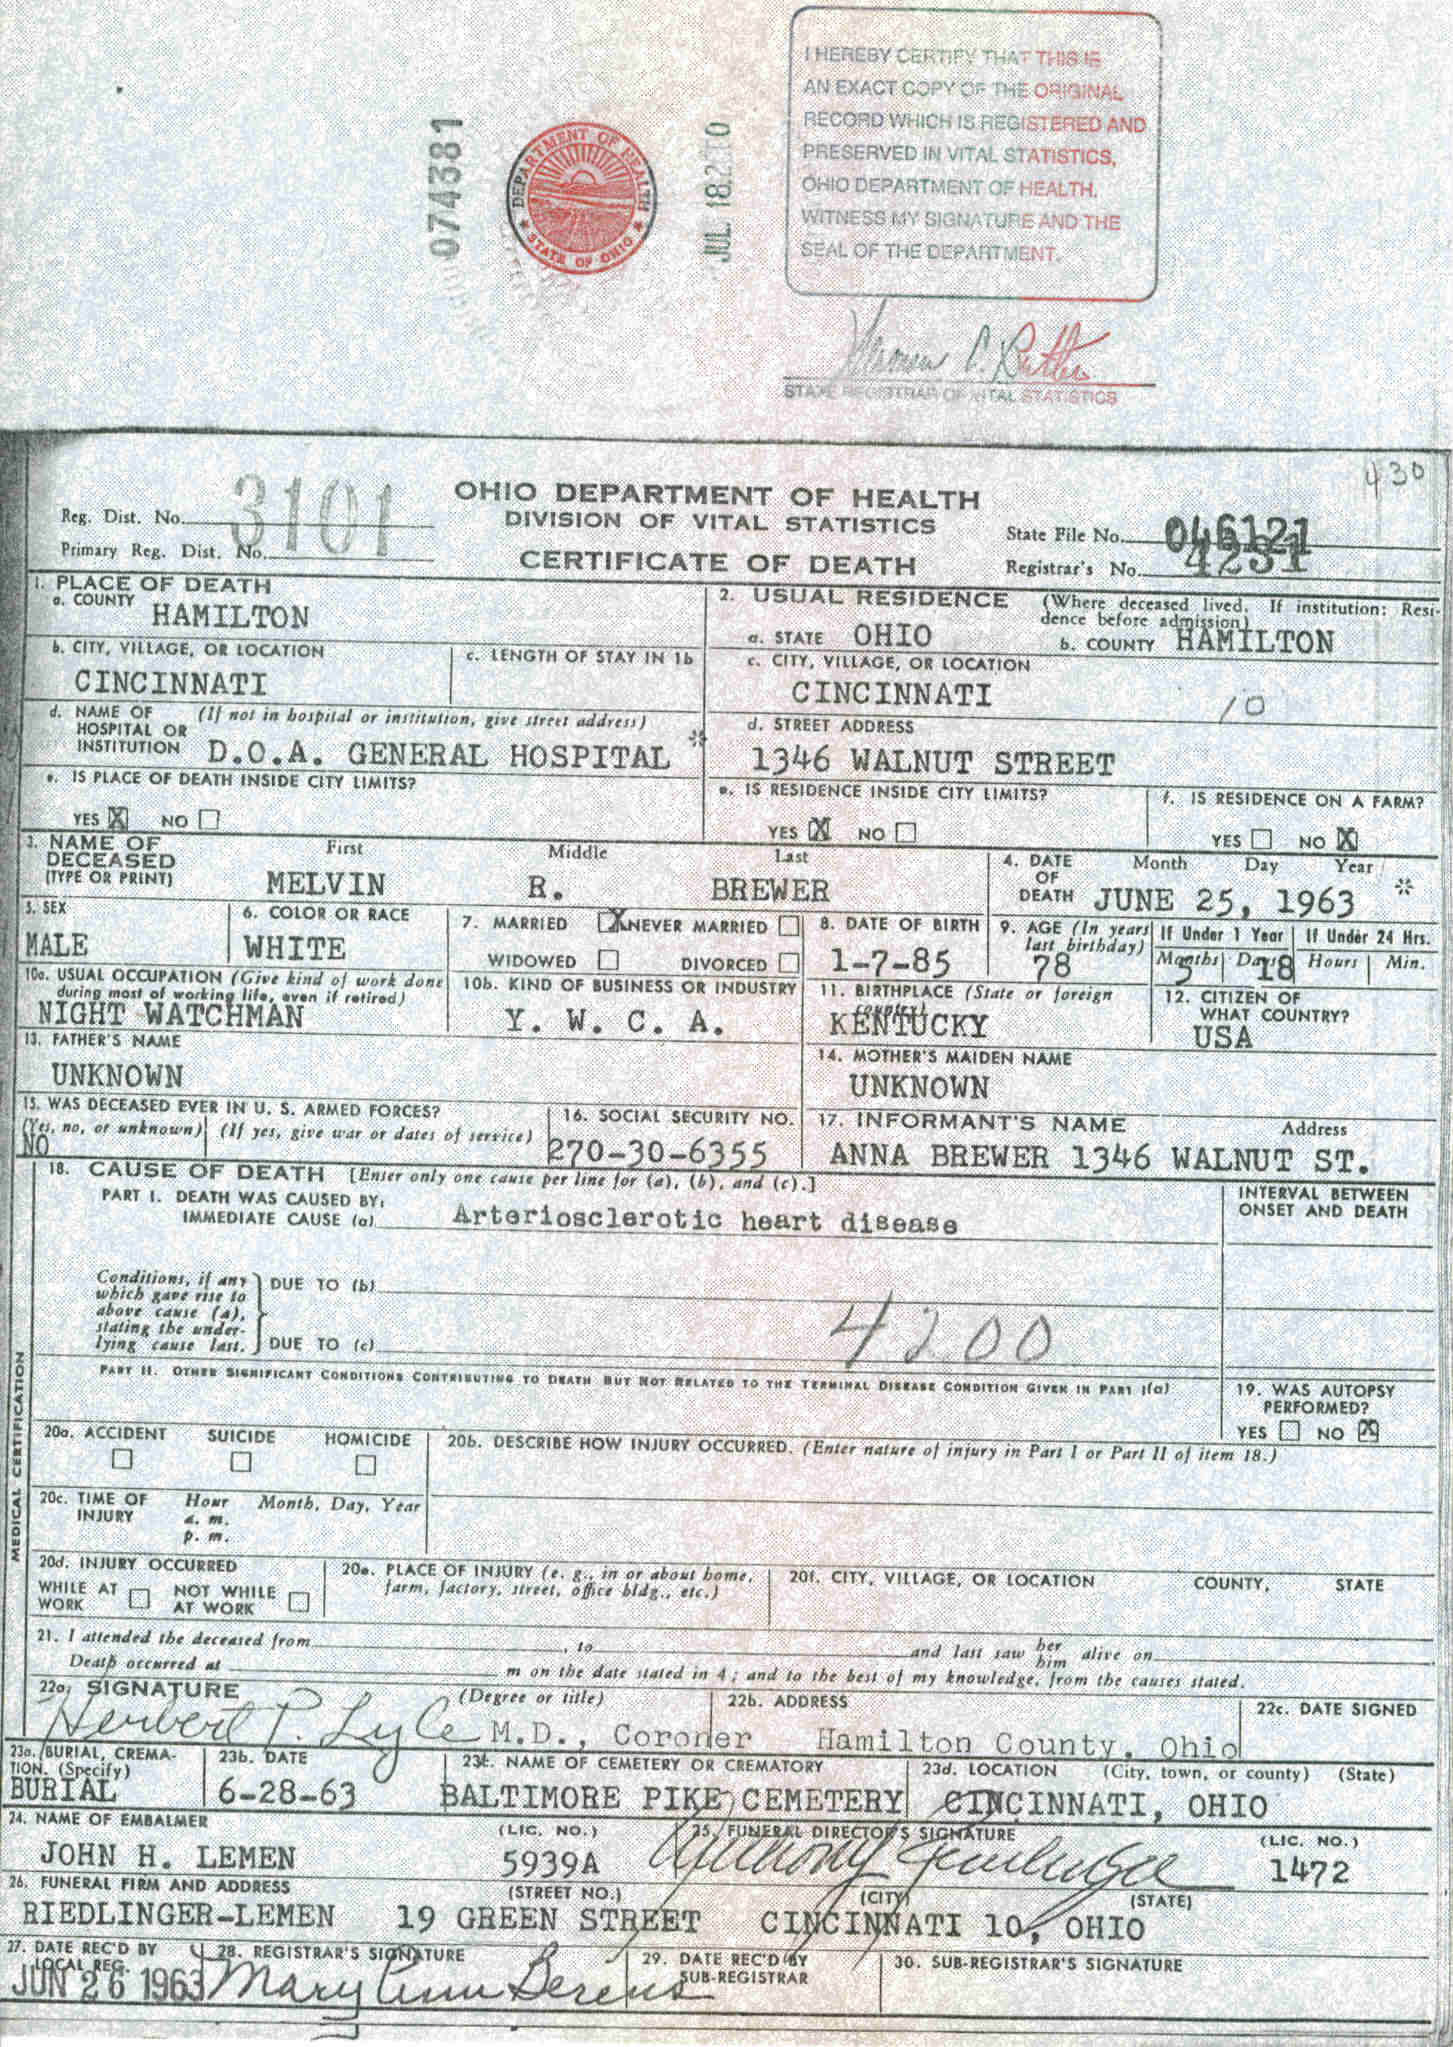 I HEREBY CERTIFY THAT THIS IS
AN EXACT COPY OF THE ORIGINAL
RECORD WHICH IS REGISTERED AND
PRESERVED IN VITAL STATISTICS,
OHIO DEPARTMENT OF HEALTH.
WITNESS MY SIGNATURE AND THE
SEAL OF THE DEPARTMENT.
074381
DEPARTMENT OF HEALTH
STATE OF OHIO
JUL 18
STATE REGISTRAR OF VITAL STATISTICS
430
Reg. Dist. No. 3101
Primary Reg. Dist. No.
OHIO DEPARTMENT OF HEALTH
DIVISION OF VITAL STATISTICS
CERTIFICATE OF DEATH
State File No. 046121
Registrar's No. 4231
1. PLACE OF DEATH
a. COUNTY HAMILTON
2. USUAL RESIDENCE (Where deceased lived. If institution: Residence before admission)
a. STATE OHIO b. COUNTY HAMILTON
b. CITY, VILLAGE, OR LOCATION
CINCINNATI
c. LENGTH OF STAY IN 1b
c. CITY, VILLAGE, OR LOCATION
CINCINNATI 10
d. NAME OF HOSPITAL OR INSTITUTION (If not in hospital or institution, give street address)
D.O.A. GENERAL HOSPITAL *
d. STREET ADDRESS
1346 WALNUT STREET
e. IS PLACE OF DEATH INSIDE CITY LIMITS?
YES X NO
e. IS RESIDENCE INSIDE CITY LIMITS?
YES X NO
f. IS RESIDENCE ON A FARM?
YES NO X
3. NAME OF DECEASED (TYPE OR PRINT)
First Middle Last
MELVIN R. BREWER
4. DATE OF DEATH Month Day Year
JUNE 25, 1963 *
5. SEX
MALE
6. COLOR OR RACE
WHITE
7. MARRIED X NEVER MARRIED
WIDOWED DIVORCED
8. DATE OF BIRTH
1-7-85
9. AGE (In years last birthday)
78
If Under 1 Year If Under 24 Hrs.
Months Days Hours Min.
5 18
10a. USUAL OCCUPATION (Give kind of work done during most of working life, even if retired)
NIGHT WATCHMAN
10b. KIND OF BUSINESS OR INDUSTRY
Y. W. C. A.
11. BIRTHPLACE (State or foreign country)
KENTUCKY
12. CITIZEN OF WHAT COUNTRY?
USA
13. FATHER'S NAME
UNKNOWN
14. MOTHER'S MAIDEN NAME
UNKNOWN
15. WAS DECEASED EVER IN U. S. ARMED FORCES?
(Yes, no, or unknown) (If yes, give war or dates of service)
NO
16. SOCIAL SECURITY NO.
270-30-6355
17. INFORMANT'S NAME Address
ANNA BREWER 1346 WALNUT ST.
MEDICAL CERTIFICATION
18. CAUSE OF DEATH [Enter only one cause per line for (a), (b), and (c).]
PART I. DEATH WAS CAUSED BY:
IMMEDIATE CAUSE (a) Arteriosclerotic heart disease
INTERVAL BETWEEN
ONSET AND DEATH
Conditions, if any
which gave rise to
above cause (a),
stating the under-
lying cause last.
DUE TO (b)
DUE TO (c)
4200
PART II. OTHER SIGNIFICANT CONDITIONS CONTRIBUTING TO DEATH BUT NOT RELATED TO THE TERMINAL DISEASE CONDITION GIVEN IN PART I(a)
19. WAS AUTOPSY
PERFORMED?
YES NO X
20a. ACCIDENT SUICIDE HOMICIDE
20b. DESCRIBE HOW INJURY OCCURRED. (Enter nature of injury in Part I or Part II of item 18.)
20c. TIME OF INJURY Hour Month, Day, Year
a. m.
p. m.
20d. INJURY OCCURRED
WHILE AT WORK NOT WHILE AT WORK
20e. PLACE OF INJURY (e. g., in or about home, farm, factory, street, office bldg., etc.)
20f. CITY, VILLAGE, OR LOCATION COUNTY, STATE
21. I attended the deceased from , to and last saw her him alive on
Death occurred at m on the date stated in 4; and to the best of my knowledge, from the causes stated.
22a. SIGNATURE (Degree or title)
Herbert P. Lyle M.D., Coroner
22b. ADDRESS
Hamilton County, Ohio
22c. DATE SIGNED
23a. BURIAL, CREMATION. (Specify)
BURIAL
23b. DATE
6-28-63
23c. NAME OF CEMETERY OR CREMATORY
BALTIMORE PIKE CEMETERY
23d. LOCATION (City, town, or county) (State)
CINCINNATI, OHIO
24. NAME OF EMBALMER (LIC. NO.)
JOHN H. LEMEN 5939A
25. FUNERAL DIRECTOR'S SIGNATURE (LIC. NO.)
1472
26. FUNERAL FIRM AND ADDRESS (STREET NO.) (CITY) (STATE)
RIEDLINGER-LEMEN 19 GREEN STREET CINCINNATI 10, OHIO
27. DATE REC'D BY LOCAL REG.
JUN 26 1963
28. REGISTRAR'S SIGNATURE
Mary Ann Berens
29. DATE REC'D BY SUB-REGISTRAR
30. SUB-REGISTRAR'S SIGNATURE